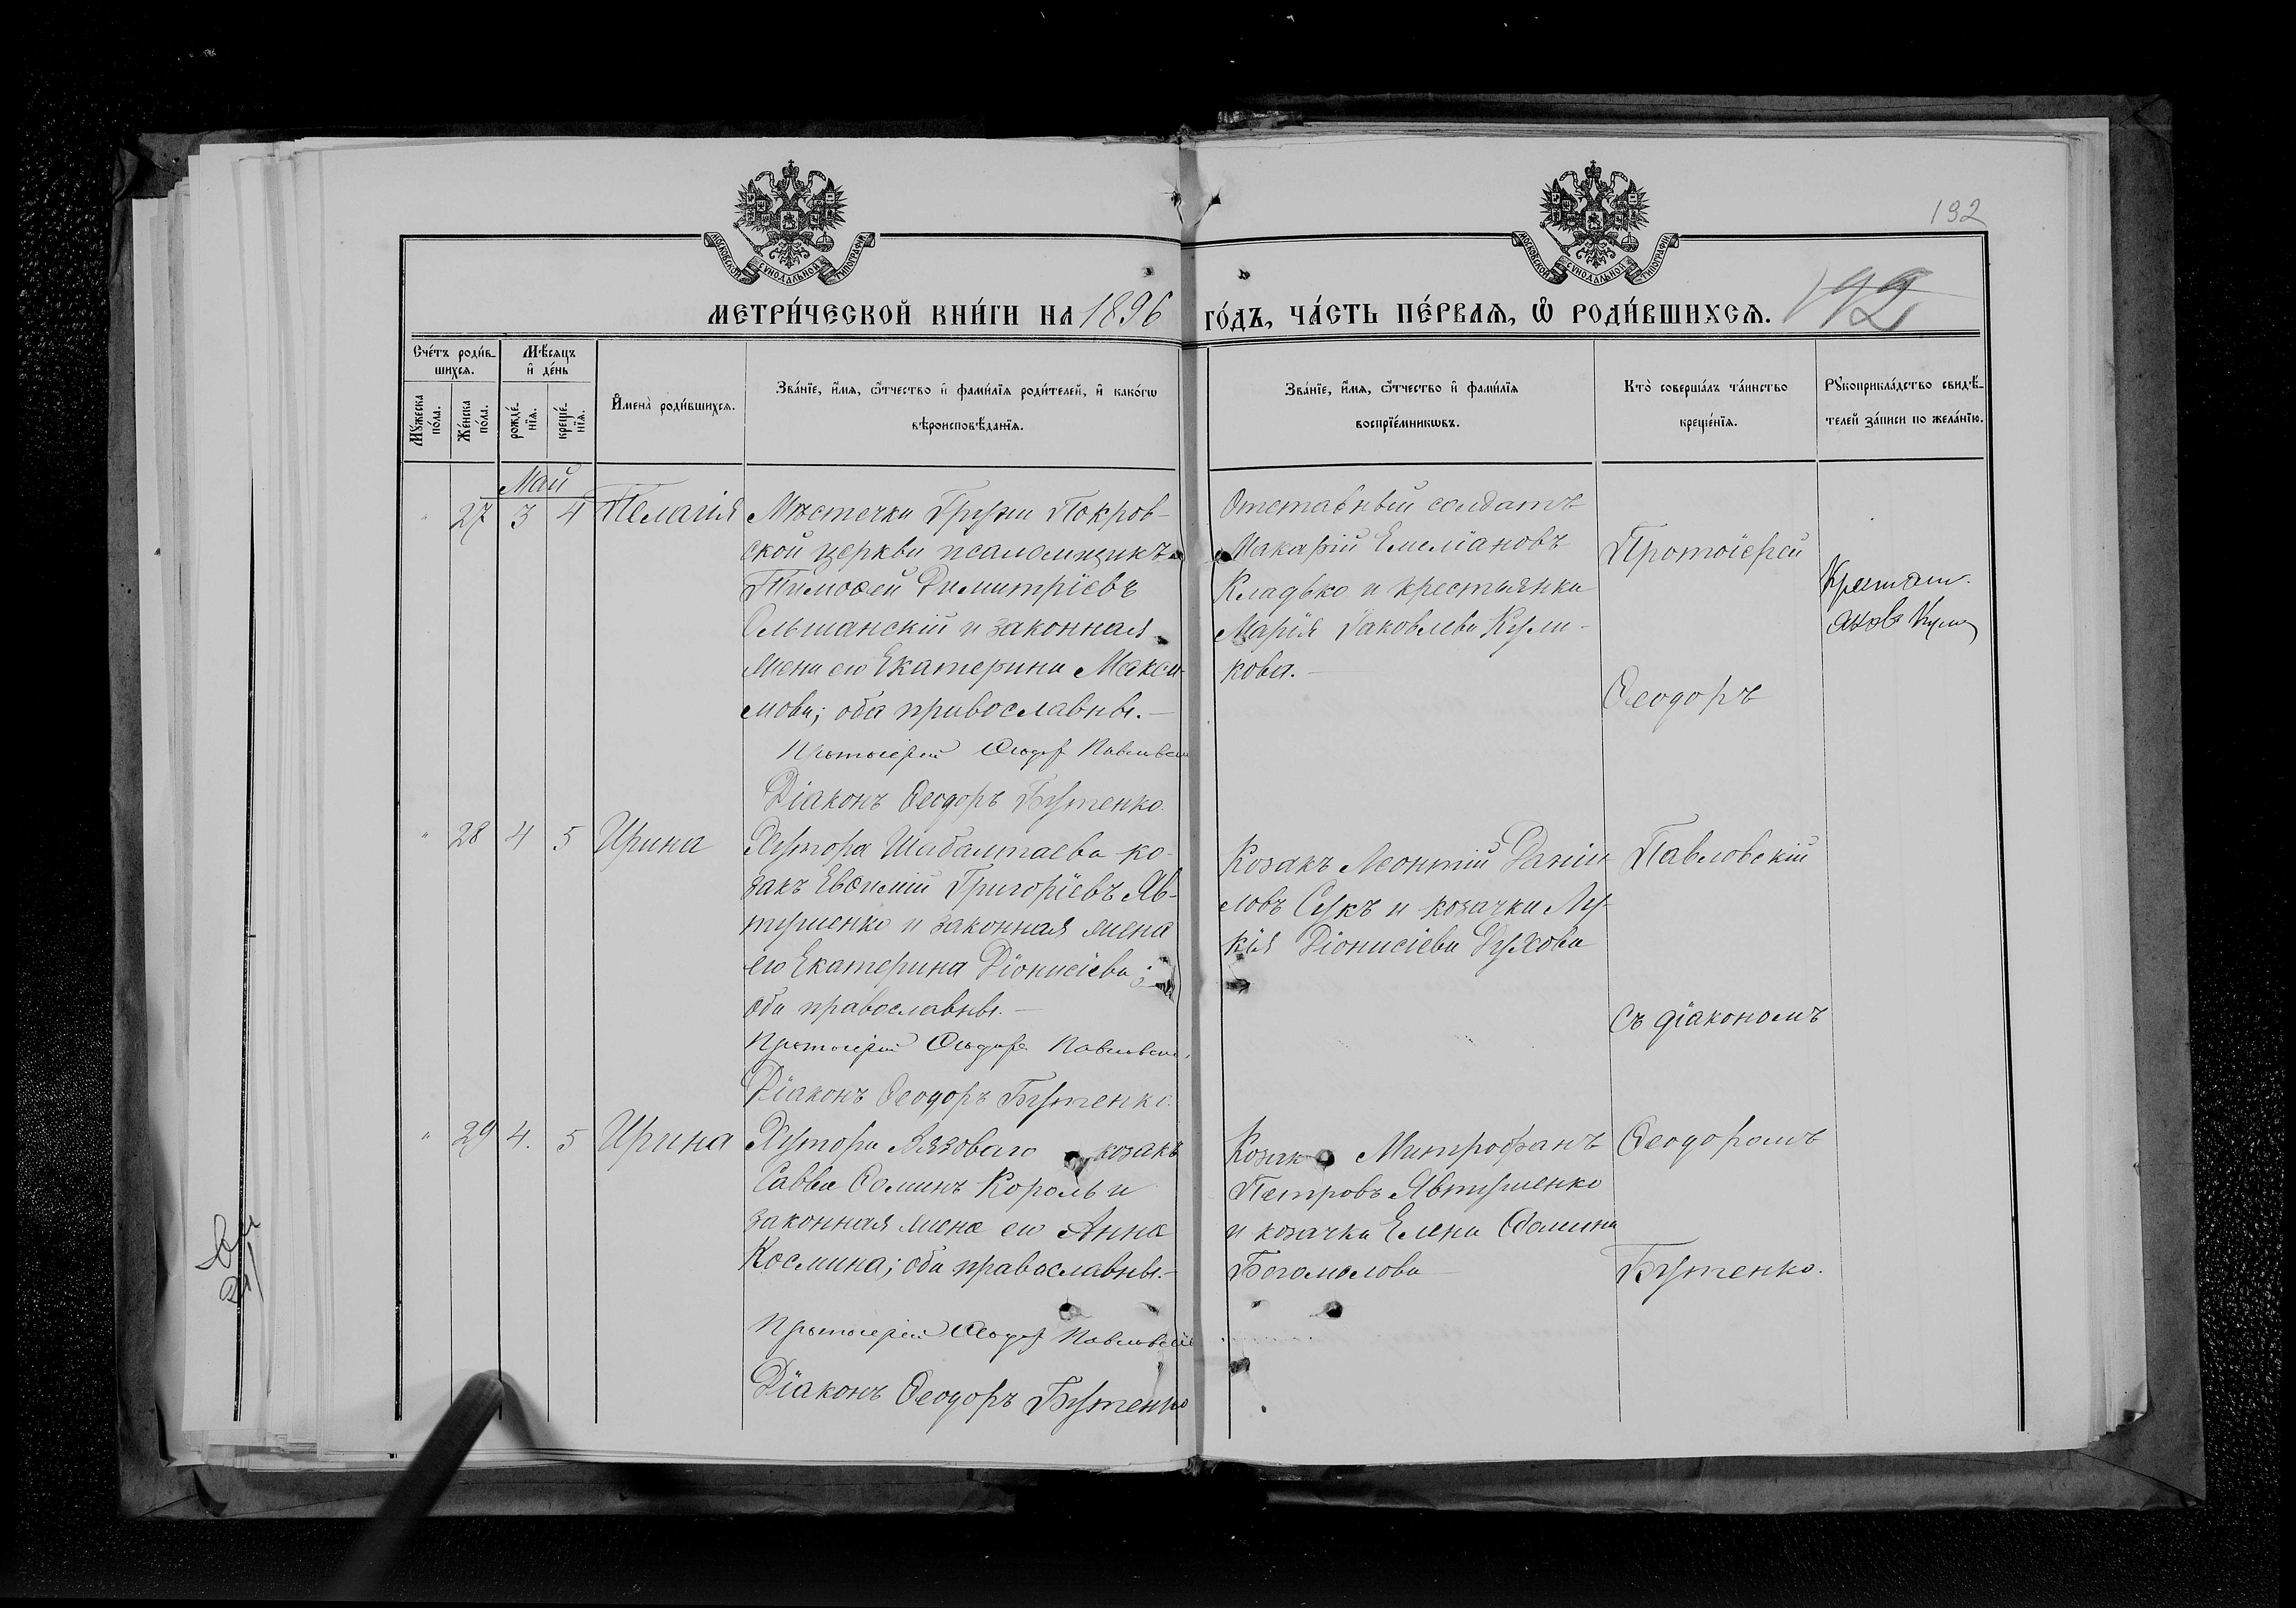 192
МОСКОВСКОЙ СѴНОДАЛЬНОЙ ТИПОГРАФІИ
МОСКОВСКОЙ СѴНОДАЛЬНОЙ ТИПОГРАФІИ
МЕТРИ́ЧЕСКОЙ КНИ́ГИ НА 1896 ГО́ДЪ, ЧА́СТЬ ПЕ́РВАѦ, Ѽ РОДИ́ВШИХСѦ. 192
Сче́тъ роди́в-
шихсѧ.
Мꙋ́жеска
по́ла.
Же́нска
по́ла.
Мѣ́сѧцъ
и҆ де́нь
рожде́-
нїѧ.
креще́-
нїѧ.
И҆мена̀ роди́вшихсѧ.
Зва́нїе, и҆́мѧ, ѻ҆́тчество и҆ фами́лїѧ роди́телей, и҆ како́гѡ
вѣроисповѣ́данїѧ.
Зва́нїе, и҆́мѧ, ѻ҆́тчество и҆ фами́лїѧ
воспрїе́мникѡвъ.
Кто̀ соверша́лъ та́инство
креще́нїѧ.
Рꙋкоприкла́дство свидѣ́-
телей за́писи по жела́нїю.
Май
" 27 3 4 Пелагія
Мѣстечка Груни Покров-
ской церкви псаломщикъ
Тимоѳей Димитріевъ
Ольшанскій и законная
жена его Екатерина Макси-
мова; оба православны.—
Протоіерей Ѳеодоръ Павловскій
Діаконъ Ѳеодоръ Бутенко.
Отставный солдатъ
Макарій Емеліановъ
Кладько и крестьянка
Марія Іаковлева Кули-
кова.—
Протоіерей
Ѳеодоръ
" 28 4 5 Ирина
Хутора Шабалтаева ко-
закъ Евѳимій Григоріевъ Яв-
тушенко и законная жена
его Екатерина Діонисіева;
оба православны.—
Протоіерей Ѳеодоръ Павловскій
Діаконъ Ѳеодоръ Бутенко.
Козакъ Леонтій Даніи-
ловъ Сукъ и козачка Лу-
кія Діонисіева
Павловскій
съ діакономъ
" 29 4. 5 Ирина
Хутора Вязоваго козакъ
Савва Ѳоминъ Король и
законная жена его Анна
Космина; оба православны.—
Протоіерей Ѳеодоръ Павловскій
Діаконъ Ѳеодоръ Бутенко
Козакъ Митрофанъ
Петровъ Явтушенко
и козачка Елена Ѳомина
Богомолова
Ѳеодоромъ
Бутенко.